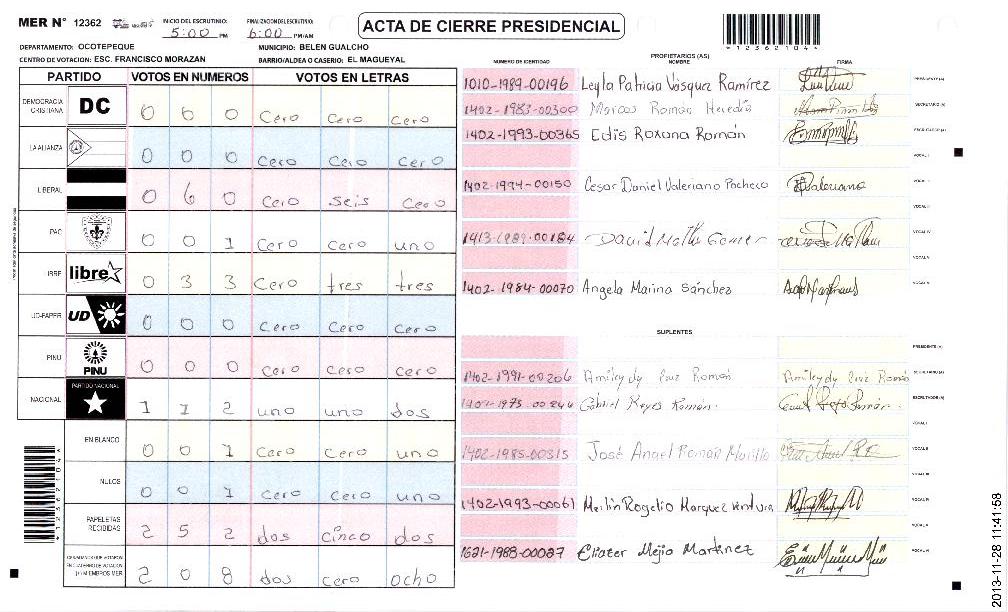 MER N° 12362
INICIO DEL ESCRUTINIO: 5:00 PM
FINALIZACION DEL ESCRUTINIO: 6:00 PM/AM
ACTA DE CIERRE PRESIDENCIAL
*12362104*
DEPARTAMENTO: OCOTEPEQUE MUNICIPIO: BELEN GUALCHO
CENTRO DE VOTACION: ESC. FRANCISCO MORAZAN BARRIO/ALDEA O CASERIO: EL MAGUEYAL
PARTIDO VOTOS EN NUMEROS VOTOS EN LETRAS
DEMOCRACIA CRISTIANA DC 0 0 0 Cero Cero Cero
LA ALIANZA 0 0 0 Cero Cero Cero
LIBERAL 0 6 0 Cero Seis Cero
PAC 0 0 1 Cero Cero uno
LIBRE libre 0 3 3 Cero tres tres
UD-FAPER UD 0 0 0 Cero Cero Cero
PINU PINU 0 0 0 Cero Cero Cero
NACIONAL PARTIDO NACIONAL 1 1 2 uno uno dos
EN BLANCO 0 0 1 Cero Cero uno
NULOS 0 0 1 Cero Cero uno
PAPELETAS RECIBIDAS 2 5 2 dos Cinco dos
CIUDADANOS QUE VOTARON EN CUADERNO DE VOTACION (+) MIEMBROS MER 2 0 8 dos cero ocho
*12362104*
PROPIETARIOS (AS)
NUMERO DE IDENTIDAD NOMBRE FIRMA
1010-1989-00196 Leyla Patricia Vásquez Ramírez PRESIDENTE (A)
1402-1983-00300 Marcos Roman Heredia SECRETARIO (A)
1402-1993-00365 Edis Roxana Román ESCRUTADOR (A)
VOCAL I
1402-1994-00150 Cesar Daniel Valeriano Pacheco VOCAL II
VOCAL III
1413-1989-00184 David VOCAL IV
VOCAL V
1402-1984-00070 Angela Marina Sánchez VOCAL VI
SUPLENTES
PRESIDENTE (A)
1402-1991-00206 Amileydy Cruz Román Amileydy Cruz Román SECRETARIO (A)
1402-1975-00244 Gabriel Reyes Román ESCRUTADOR (A)
VOCAL I
1402-1985-00315 José Angel Román Murillo VOCAL II
VOCAL III
1402-1993-00061 Merlin Rogelio Marquez Ventura VOCAL IV
VOCAL V
1621-1988-00087 Eliater Mejia Martinez VOCAL VI
2013-11-28 11:41:58